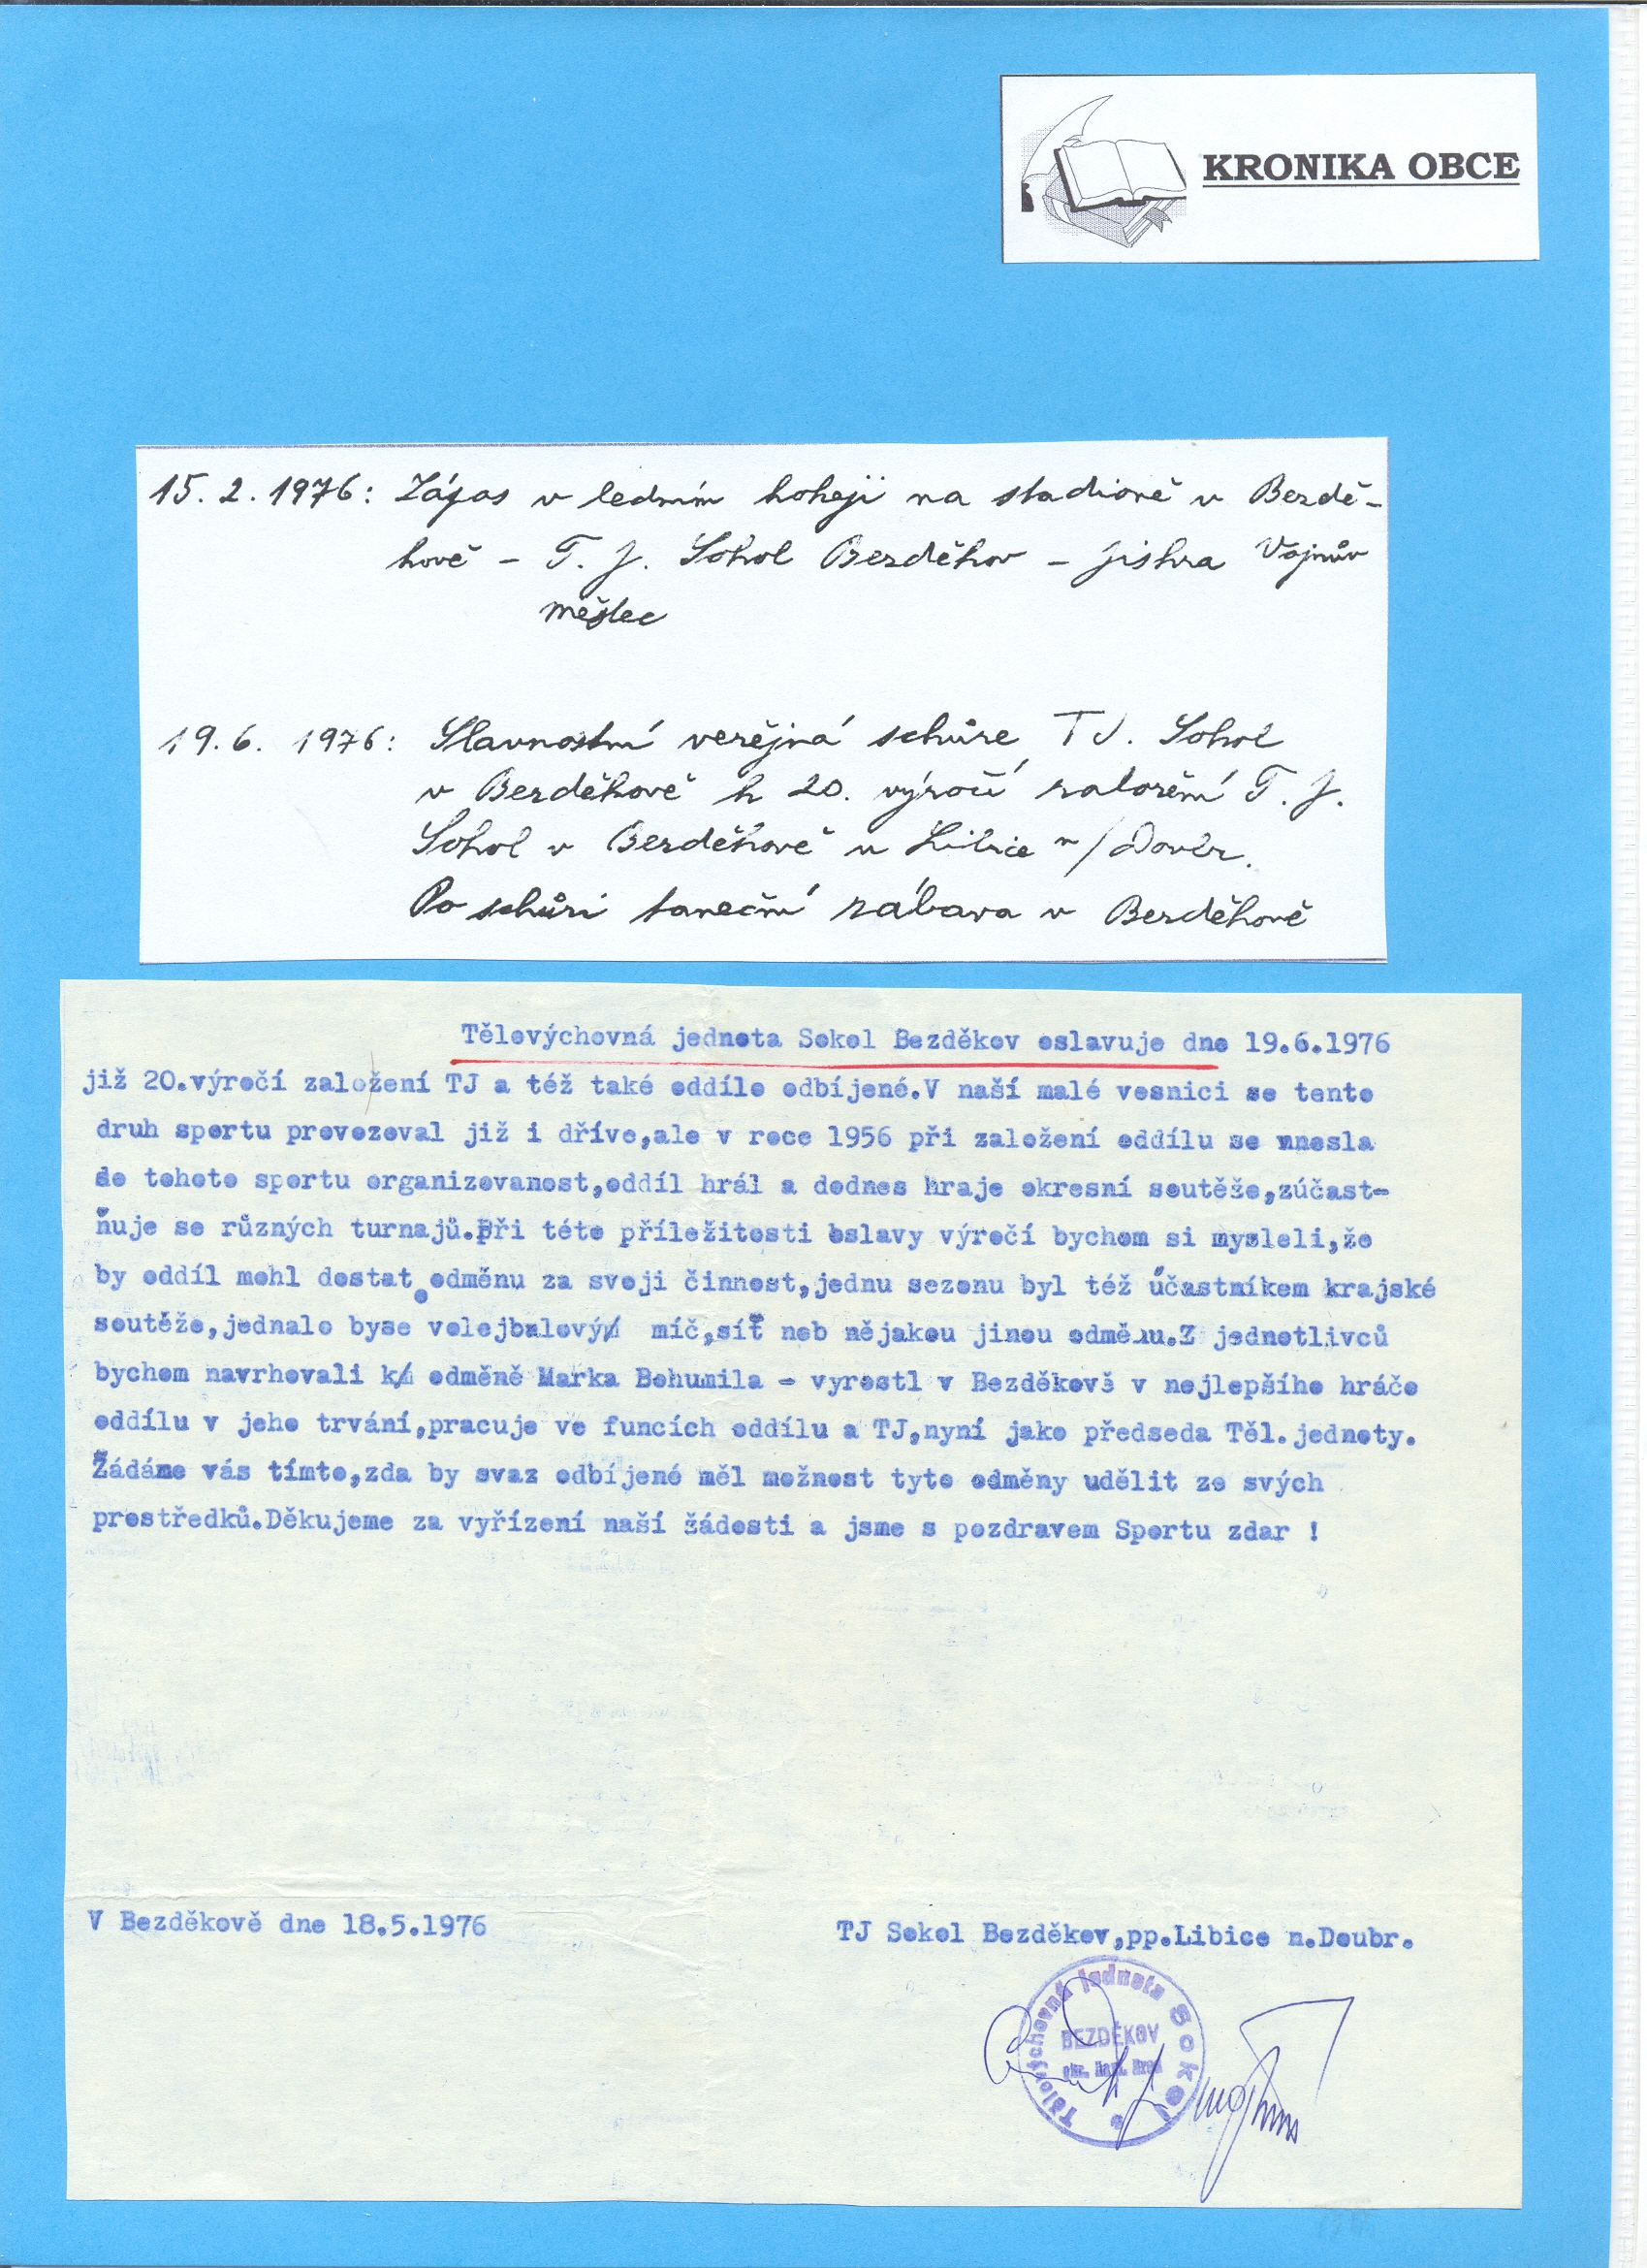 KRONIKA OBCE
15. 2. 1976: Zápas v ledním hokeji na stadioně v Bezdě-
kově – T. J. Sokol Bezděkov – Jiskra Vojnův
Městec
19. 6. 1976: Slavnostní veřejná schůze TJ. Sokol
v Bezděkově k 20. výročí založení T. J.
Sokol v Bezděkově u Libice n/Doubr.
Po schůzi taneční zábava v Bezděkově
Tělovýchovná jednota Sokol Bezděkov oslavuje dne 19.6.1976
již 20.výročí založení TJ a též také oddílo odbíjené.V naší malé vesnici se tento
druh sportu provozoval již i dříve,ale v roce 1956 při založení oddílu se vnesla
do tohoto sportu organizovanost,oddíl hrál a dodnes hraje okresní soutěže,zúčast-
ňuje se různých turnajů.Při této příležitosti oslavy výročí bychom si mysleli,že
by oddíl mohl dostat odměnu za svoji činnost,jednu sezonu byl též účastníkem krajské
soutěže,jednalo byse volejbalový míč,síť neb nějakou jinou odměnu.Z jednotlivců
bychom navrhovali k odměně Marka Bohumila - vyrostl v Bezděkově v nejlepšího hráče
oddílu v jeho trvání,pracuje ve funcích oddílu a TJ,nyní jako předseda Těl.jednoty.
Žádáme vás tímto,zda by svaz odbíjené měl možnost tyto odměny udělit ze svých
prostředků.Děkujeme za vyřízení naší žádosti a jsme s pozdravem Sportu zdar !
V Bezděkově dne 18.5.1976
TJ Sokol Bezděkov,pp.Libice n.Doubr.
Tělovýchovná jednota Sokol
BEZDĚKOV
okr. Havl. Brod